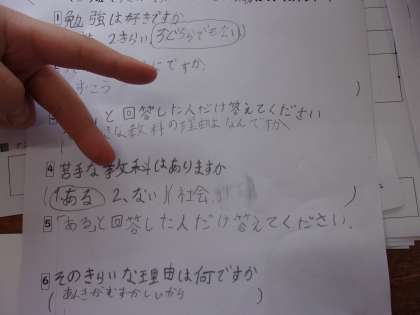 1 勉強は好きですか
2きらい 3どちらでもない
ですか.
)
と回答した人だけ答えてください
な教科の理由はなんですか
4 苦手な教科はありますか
(1ある 2、ない)(社会
5 「ある」と回答した人だけ答えてください.
6 そのきらいな理由は何ですか
( あんきがむずかしいから )